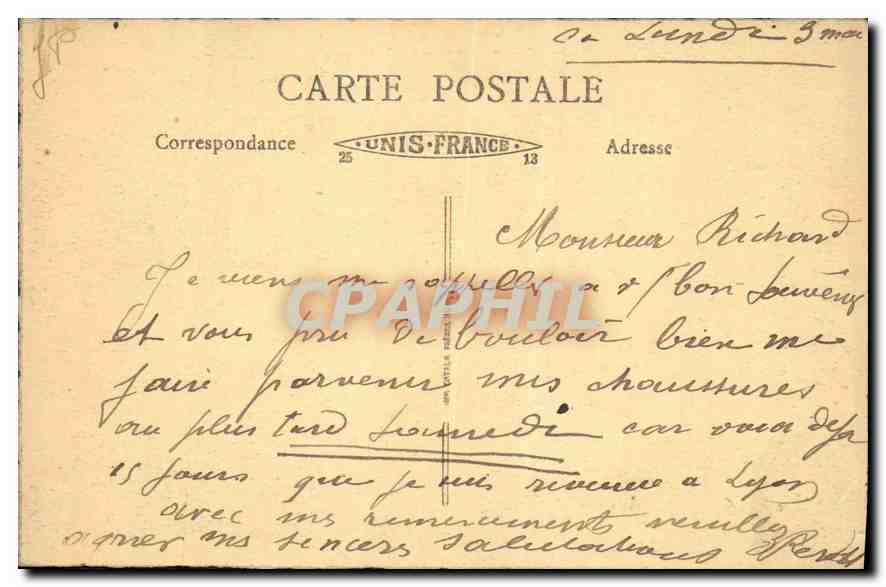 ce Lundi 3 mai
CARTE POSTALE
Correspondance
UNIS-FRANCE
25 13
Adresse
Monsieur Richard
Je viens me rappeller a v/ bon souvenir
et vous prie de vouloir bien me
faire parvenir mes chaussures
au plus tard samedi car voici deja
15 jours que je suis revenue a Lyon
avec mes remerciements veuillez
agréer mes sincers salutations
CPAPHIL